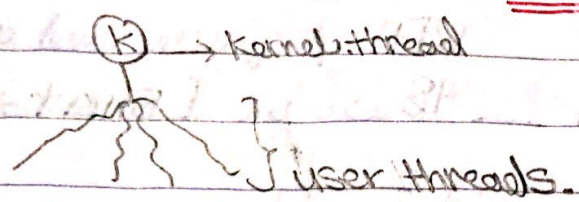 K → Kernel thread
user threads.